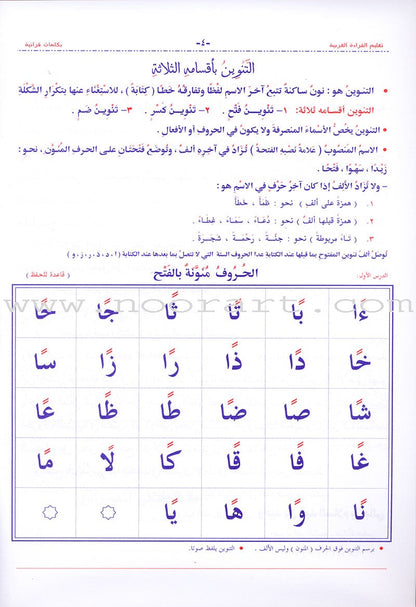 تعليم القراءة العربية -٤- بكلمات قرآنية
التنوين بأقسامه الثلاثة
• التنوين هو : نون ساكنة تتبع آخر الاسم لفظًا وتفارقه خطًا ( كتابة ) ، للاستغناء عنها بتكرار الشكلة
التنوين أقسامه ثلاثة: ١- تنوين فتح . ٢- تنوين كسر . ٣- تنوين ضم .
• التنوين يخصُّ الأسماء المنصرفة ولا يكون في الحروف أو الأفعال .
• الاسم المنصوب ( علامة نصبه الفتحة ) تزاد في آخره ألف ، وتوضع فتحتان على الحرف المنون . نحو :
زيدًا ، سهوًا ، فتحًا .
– ولا تزاد الألف إذا كان آخر حرف في الاسم هو :
١ . ( همزة على ألف ) نحو : ظمأ ، خطأ
٢ . ( همزة قبلها ألف ) نحو : دعاءً ، سماءً ، غطاءً .
٣ . ( تاء مربوطة ) نحو : جنةً ، رحمةً ، شجرةً .
توصل ألف تنوين المفتوح بما قبلها عند الكتابة عدا الحروف الستة التي لا تتصل بما بعدها عند الكتابة ( ا ، د ، ذ ، ر ، ز ، و )
الدرس الأول: الحروف منونة بالفتح ( قاعدة للحفظ )
ءًا بًا تًا ثًا جًا حًا
خًا دًا ذًا رًا زًا سًا
شًا صًا ضًا طًا ظًا عًا
غًا فًا قًا كًا لًا مًا
نًا وًا هًا يًا
www.noorart.com
• يرسم التنوين فوق الحرف ( المنون ) وليس الألف . • التنوين يلفظ صوتا.